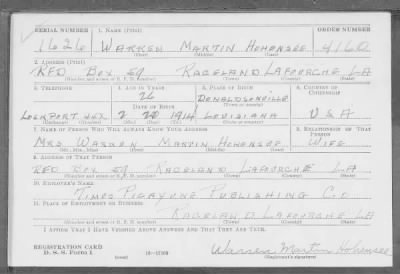 SERIAL NUMBER 1. NAME (Print) ORDER NUMBER
1626 WARREN MARTIN HOHENSEE 4160
(First) (Middle) (Last)
2. ADDRESS (Print)
RFD BOX 59 RACELAND LAFOURCHE LA
(Number and street or R. F. D. number) (Town) (County) (State)
3. TELEPHONE 4. AGE IN YEARS 5. PLACE OF BIRTH 6. COUNTRY OF CITIZENSHIP
26 DONALDSONVILLE
DATE OF BIRTH (Town or county)
LOCKPORT 2 20 1914 LOUISIANA U S A
(Exchange) (Number) (Mo.) (Day) (Yr.) (State or country)
7. NAME OF PERSON WHO WILL ALWAYS KNOW YOUR ADDRESS 8. RELATIONSHIP OF THAT PERSON
MRS WARREN MARTIN HOHENSEE WIFE
(Mr., Mrs., Miss) (First) (Middle) (Last)
9. ADDRESS OF THAT PERSON
RFD BOX 59 RACELAND LAFOURCHE LA
(Number and street or R. F. D. number) (Town) (County) (State)
10. EMPLOYER'S NAME
TIMES PICAYUNE PUBLISHING CO
11. PLACE OF EMPLOYMENT OR BUSINESS
RACELAND LAFOURCHE LA
(Number and street or R. F. D. number) (Town) (County) (State)
I AFFIRM THAT I HAVE VERIFIED ABOVE ANSWERS AND THAT THEY ARE TRUE.
REGISTRATION CARD
D. S. S. Form 1 (over) Warren Martin Hohensee
(Registrant's signature)